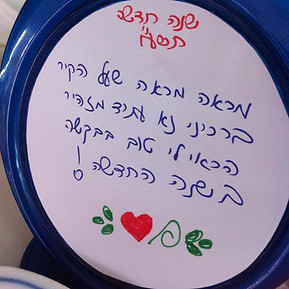 שנה חדשה
תשע"ו
מראה מראה שעל הקיר
ברכיני נא עתיד מזהיר
הראי לי טוב בבקשה
בשנה החדשה!